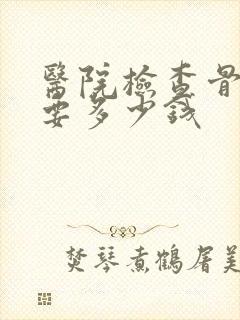 醫院檢查骨
要多少錢
焚琴煮鶴屠美